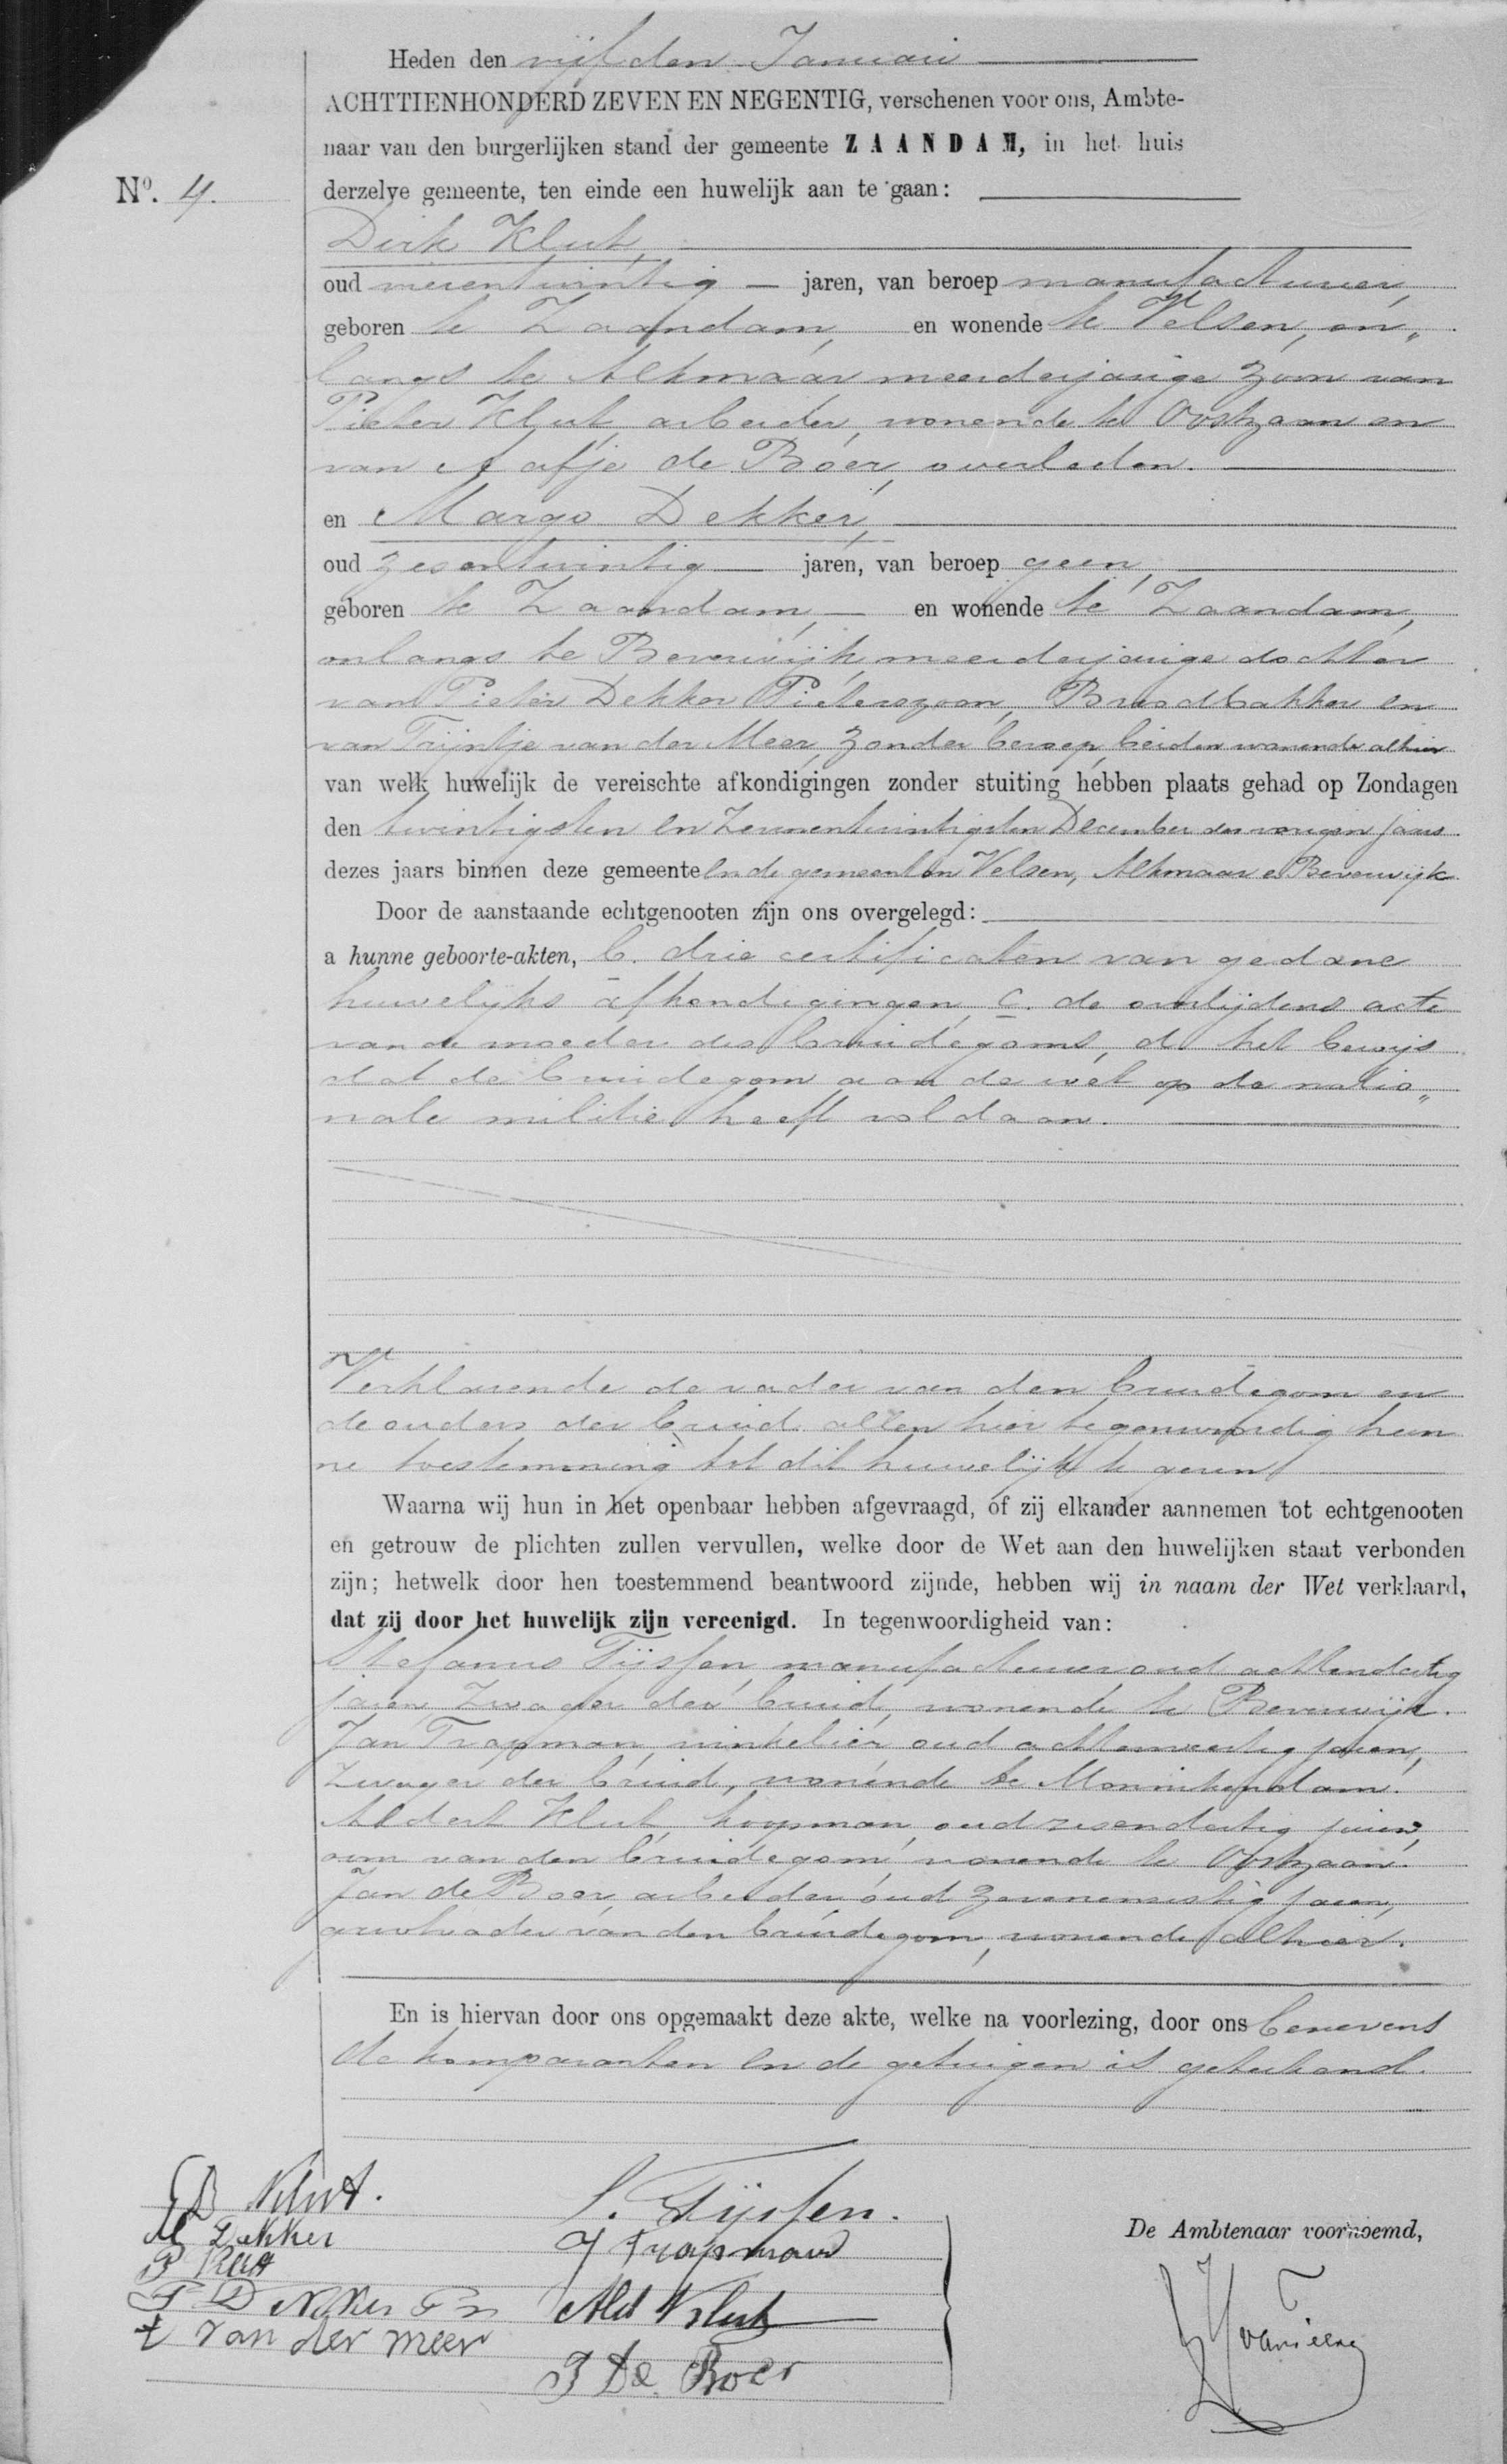 Heden den vijfden Januari
ACHTTIENHONDERD ZEVEN EN NEGENTIG, verschenen voor ons, Ambte-
naar van den burgerlijken stand der gemeente ZAANDAM, in het huis
No. 4.
derzelve gemeente, ten einde een huwelijk aan te gaan:
Dirk Klut,
oud vierentwintig jaren, van beroep manufacturier,
geboren te Zaandam, en wonende te Velsen, on„
langs te Alkmaar meerderjarige zoon van
Pieter Klut, arbeider, wonende te Oostzaan en
van Aafje de Boer, overleden.
en Margo Dekker,
oud zesentwintig jaren, van beroep geen,
geboren te Zaandam, en wonende te Zaandam,
onlangs te Beverwijk, meerderjarige dochter
van Pieter Dekker Pieterszoon, Broodbakker en
van Trijntje van der Meer, zonder beroep, beiden wonende alhier
van welk huwelijk de vereischte afkondigingen zonder stuiting hebben plaats gehad op Zondagen
den twintigsten en zevenentwintigsten December des vorigen jaars
dezes jaars binnen deze gemeente en de gemeenten Velsen, Alkmaar en Beverwijk.
Door de aanstaande echtgenooten zijn ons overgelegd:
a hunne geboorte-akten, b. drie certificaten van gedane
huwelijks afkondigingen, c. de overlijdens acte
van de moeder des bruidegoms, d het bewijs
dat de bruidegom aan de wet op de natio„
nale militie heeft voldaan.
Verklarende de vader van den bruidegom en
de ouders der bruid allen hier tegenwoordig hun
ne toestemming tot dit huwelijk te geven
Waarna wij hun in het openbaar hebben afgevraagd, of zij elkander aannemen tot echtgenooten
en getrouw de plichten zullen vervullen, welke door de Wet aan den huwelijken staat verbonden
zijn; hetwelk door hen toestemmend beantwoord zijnde, hebben wij in naam der Wet verklaard,
dat zij door het huwelijk zijn vereenigd. In tegenwoordigheid van:
Stefanus Tijssen, manufacturier oud achtendertig
jaren, zwager der bruid, wonende te Beverwijk.
Jan Trapman, winkelier, oud achtenveertig jaren,
zwager der bruid, wonende te Monnikendam.
Aldert Klut, koopman, oud zesendertig jaren,
oom van den bruidegom, wonende te Oostzaan.
Jan de Boer, arbeider, oud jaren,
grootvader van den bruidegom, wonende alhier.
En is hiervan door ons opgemaakt deze akte, welke na voorlezing, door ons benevens
de komparanten en de getuigen is geteekend.
D Klut.
S. Tijssen.
M Dekker
J Trapman
De Ambtenaar voornoemd,
P Klut
P Dekker Pz
Ald Klut
t van der meer
J de Boer